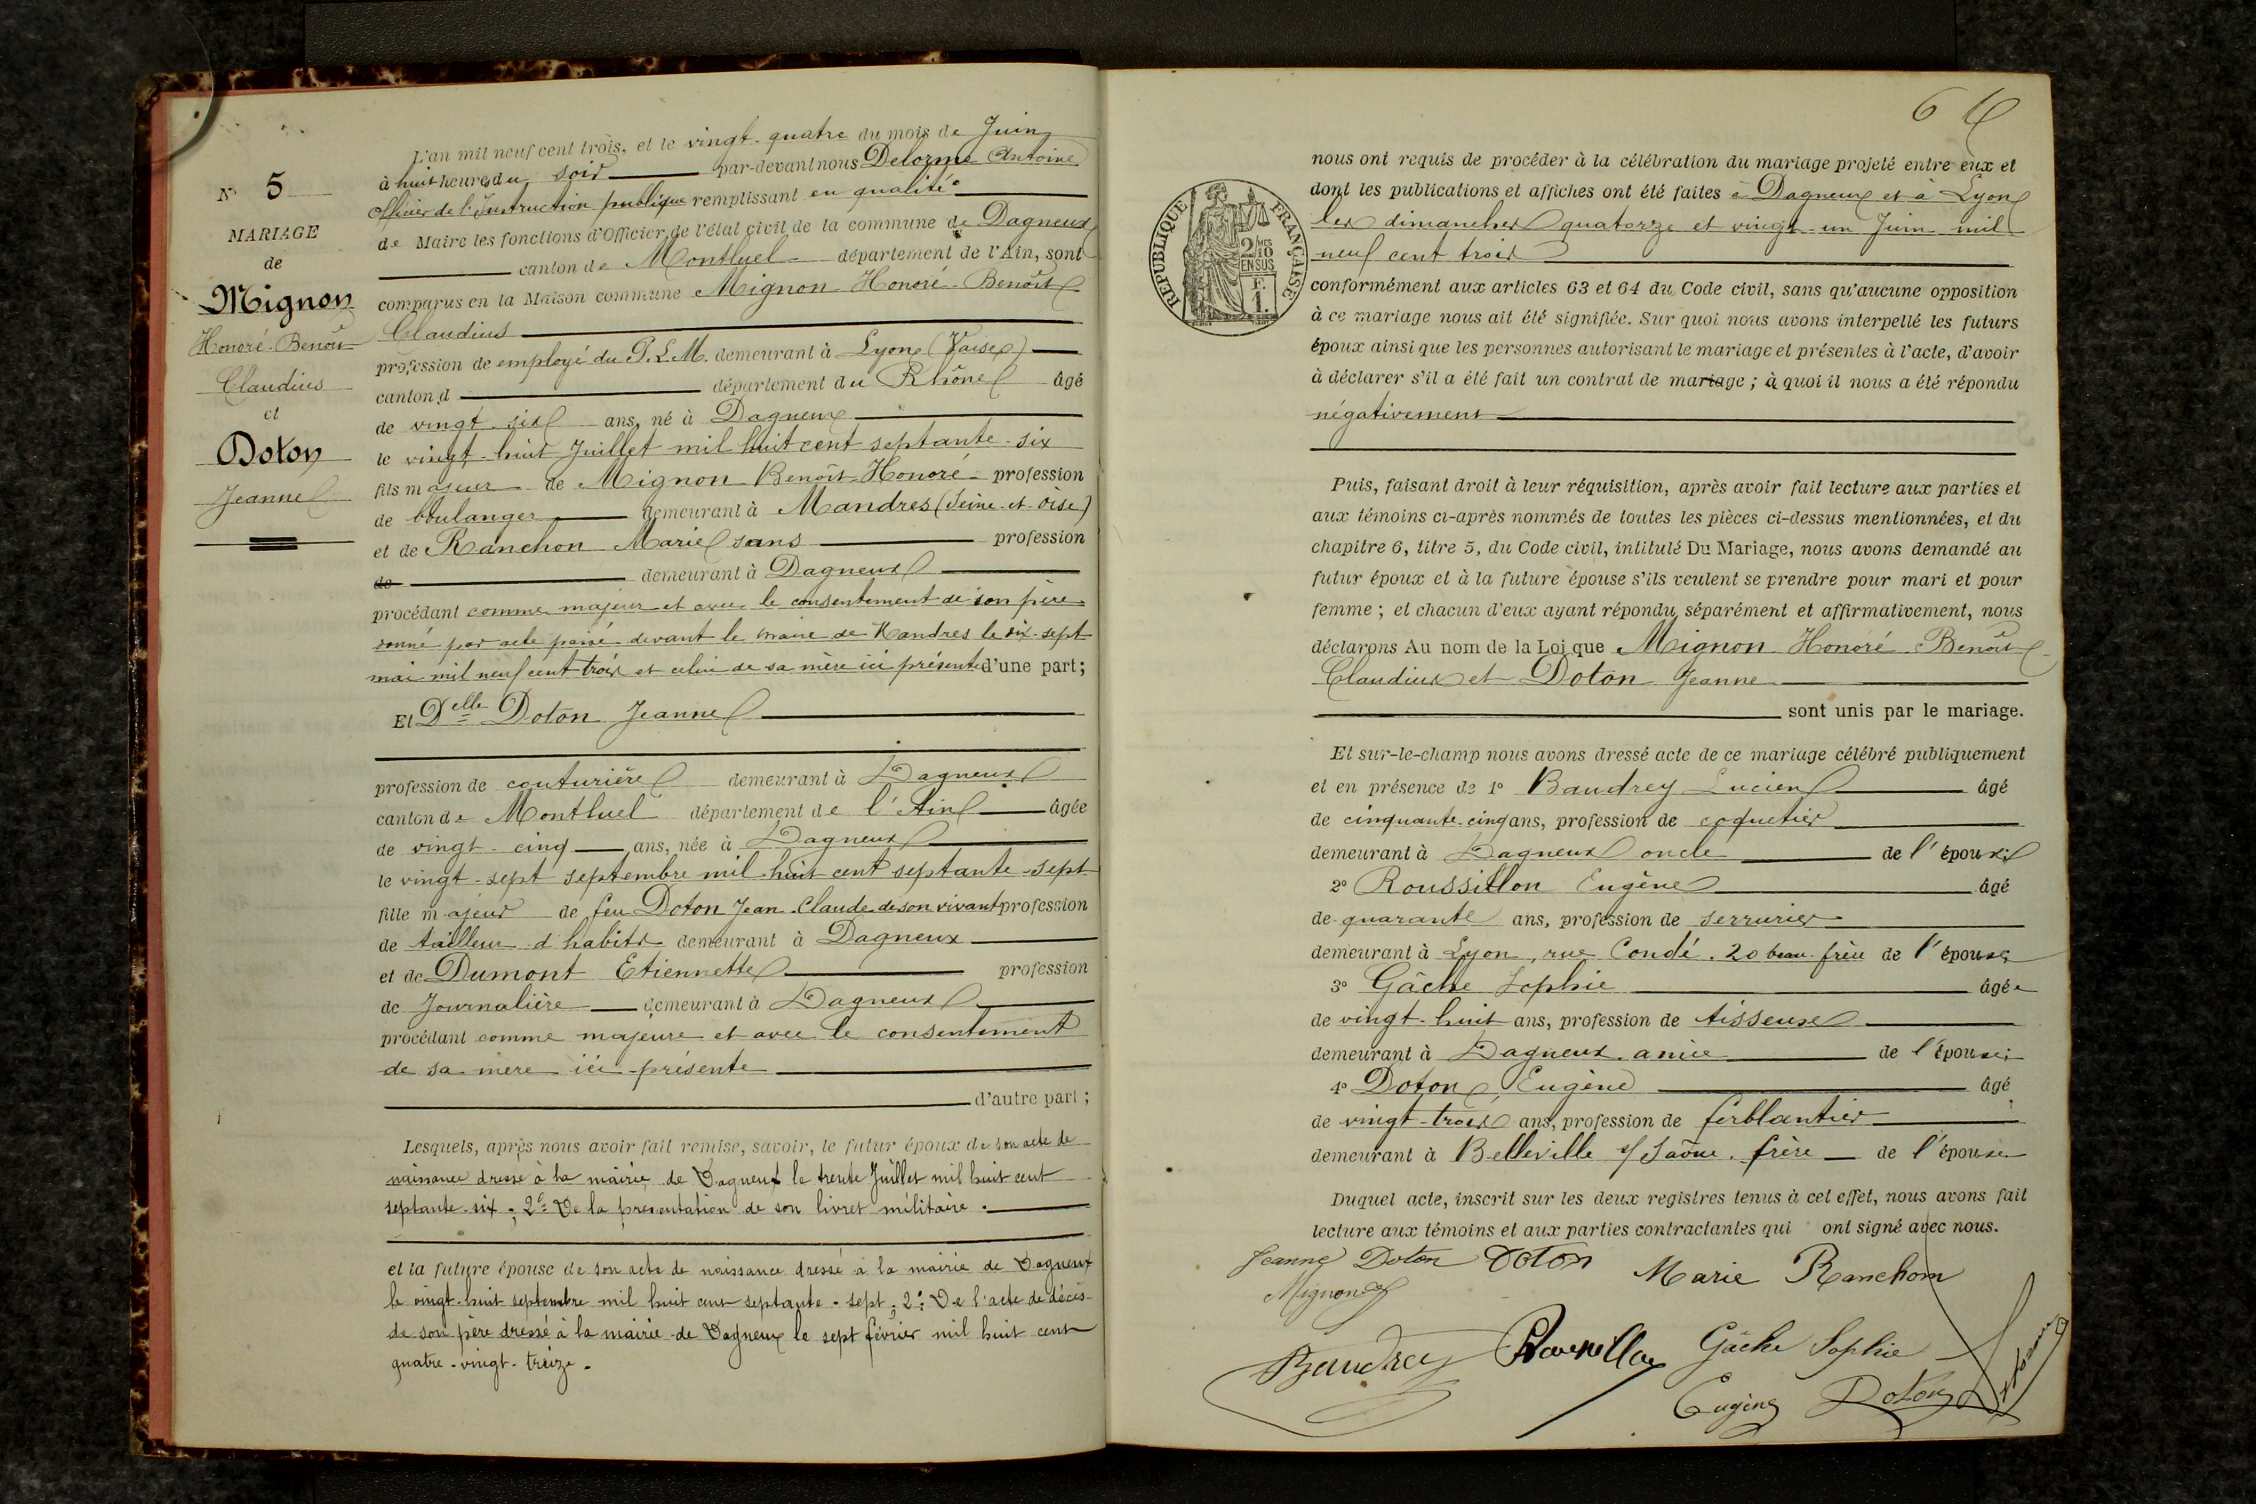 N° 5
MARIAGE
de
Mignon
Honoré Benoît
Claudius
et
Doton
Jeanne
L'an mil neuf cent trois, et le vingt-quatre du mois de Juin
à huit heures du soir par-devant nous Delorme Antoine
officier de l'Instruction publique remplissant en qualité
de Maire les fonctions d'Officier de l'état civil de la commune de Dagneux
canton de Montluel département de l'Ain, sont
comparus en la Maison commune Mignon Honoré Benoît
Claudius
profession de employé du P.L.M. demeurant à Lyon (Vaise)
canton d département du Rhône âgé
de vingt-six ans, né à Dagneux
le vingt-huit Juillet mil huit cent septante-six
fils majeur de Mignon Benoît Honoré profession
de boulanger demeurant à Mandres (Seine-et-Oise)
et de Ranchon Marie sans profession
de demeurant à Dagneux
procédant comme majeur et avec le consentement de son père
donné par acte passé devant le maire de Mandres le dix-sept
mai mil neuf cent trois et celui de sa mère ici présente d'une part;
Et Delle Doton Jeanne
profession de couturière demeurant à Dagneux
canton de Montluel département de l'Ain âgée
de vingt-cinq ans, née à Dagneux
le vingt-sept septembre mil huit cent septante-sept
fille majeur de feu Doton Jean-Claude de son vivant profession
de tailleur d'habits demeurant à Dagneux
et de Dumont Etiennette profession
de Journalière demeurant à Dagneux
procédant comme majeure et avec le consentement
de sa mère ici présente
d'autre part;
Lesquels, après nous avoir fait remise, savoir, le futur époux de son acte de
naissance dressé à la mairie de Dagneux le trente Juillet mil huit cent
septante-six; 2° De la présentation de son livret militaire.
et la future épouse de son acte de naissance dressé à la mairie de Dagneux
le vingt-huit septembre mil huit cent septante-sept; 2° De l'acte de décès
de son père dressé à la mairie de Dagneux le sept février mil huit cent
quatre-vingt-treize.
6
RÉPUBLIQUE FRANÇAISE
2/10 MES
EN SUS
F.
1.
nous ont requis de procéder à la célébration du mariage projeté entre eux et
dont les publications et affiches ont été faites à Dagneux et à Lyon
les dimanches quatorze et vingt-un Juin mil
neuf cent trois
conformément aux articles 63 et 64 du Code civil, sans qu'aucune opposition
à ce mariage nous ait été signifiée. Sur quoi nous avons interpellé les futurs
époux ainsi que les personnes autorisant le mariage et présentes à l'acte, d'avoir
à déclarer s'il a été fait un contrat de mariage; à quoi il nous a été répondu
négativement
Puis, faisant droit à leur réquisition, après avoir fait lecture aux parties et
aux témoins ci-après nommés de toutes les pièces ci-dessus mentionnées, et du
chapitre 6, titre 5, du Code civil, intitulé Du Mariage, nous avons demandé au
futur époux et à la future épouse s'ils veulent se prendre pour mari et pour
femme; et chacun d'eux ayant répondu séparément et affirmativement, nous
déclarons Au nom de la Loi que Mignon Honoré Benoît
Claudius et Doton Jeanne
sont unis par le mariage.
Et sur-le-champ nous avons dressé acte de ce mariage célébré publiquement
et en présence de 1° Baudrey Lucien âgé
de cinquante-cinq ans, profession de coquetier
demeurant à Dagneux oncle de l'époux;
2° Roussillon Eugène âgé
de quarante ans, profession de serrurier
demeurant à Lyon, rue Condé. 20 beau-frère de l'épouse;
3° Gâche Sophie âgée
de vingt-huit ans, profession de tisseuse
demeurant à Dagneux amie de l'épouse;
4° Doton Eugène âgé
de vingt-trois ans, profession de ferblantier
demeurant à Belleville s/Saône. frère de l'épouse
Duquel acte, inscrit sur les deux registres tenus à cet effet, nous avons fait
lecture aux témoins et aux parties contractantes qui ont signé avec nous.
Jeanne Doton Doton Marie Ranchon
Mignon
Baudrey Roussillon Gâche Sophie
Eugène Doton